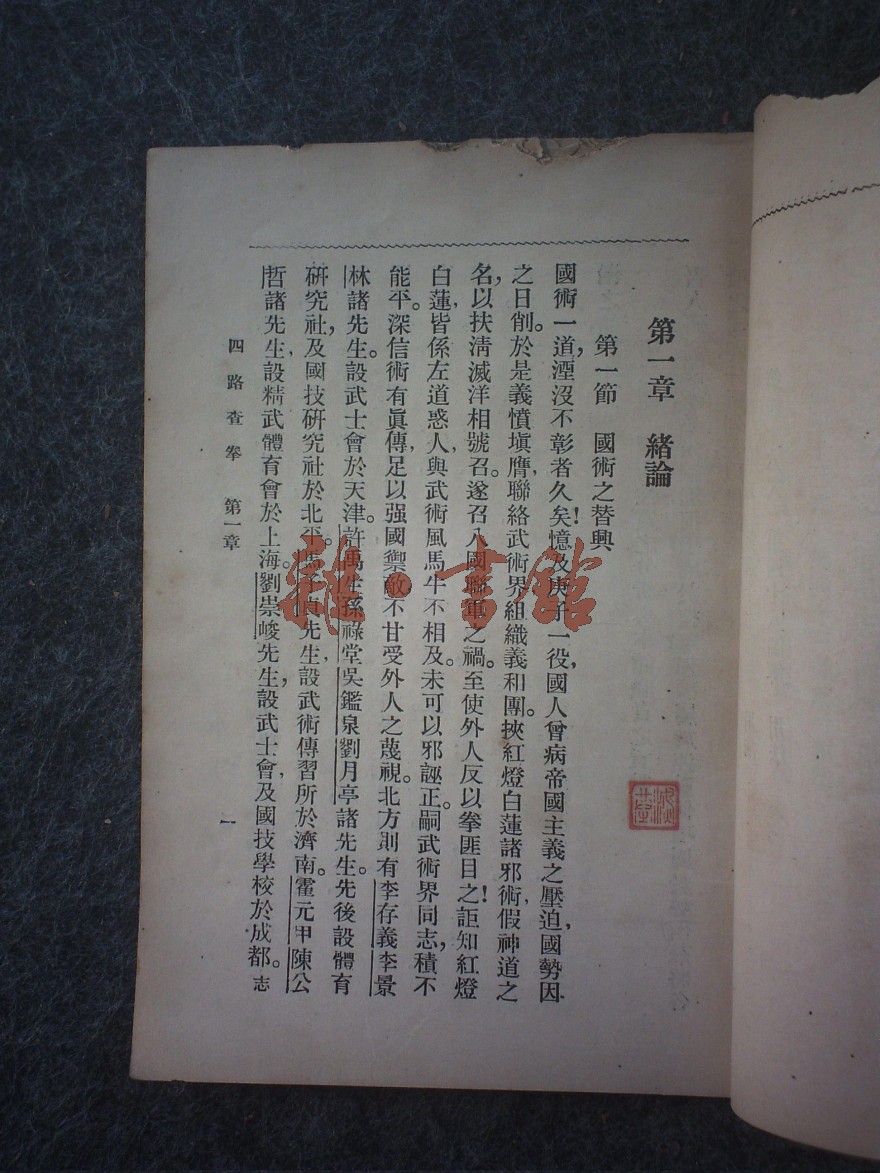 第一章　緒論
第一節　國術之替興
國術一道，湮沒不彰者久矣！憶及庚子一役，國人曾病帝國主義之壓迫，國勢因
之日削。於是義憤塡膺，聯絡武術界組織義和團。挾紅燈白蓮諸邪術，假神道之
名，以扶淸滅洋相號召。遂召八國聯軍之禍。至使外人反以拳匪目之！詎知紅燈
白蓮，皆係左道惑人，與武術風馬牛不相及。未可以邪誣正。嗣武術界同志，積不
能平。深信術有眞傳，足以强國禦敵，不甘受外人之蔑視。北方則有李存義李景
林諸先生。設武士會於天津。許禹生孫祿堂吳鑑泉劉月亭諸先生。先後設體育
硏究社，及國技硏究社於北平。馬子貞先生，設武術傳習所於濟南。霍元甲陳公
哲諸先生，設精武體育會於上海。劉崇峻先生，設武士會，及國技學校於成都。志
四路查拳　第一章
一
雜·書館